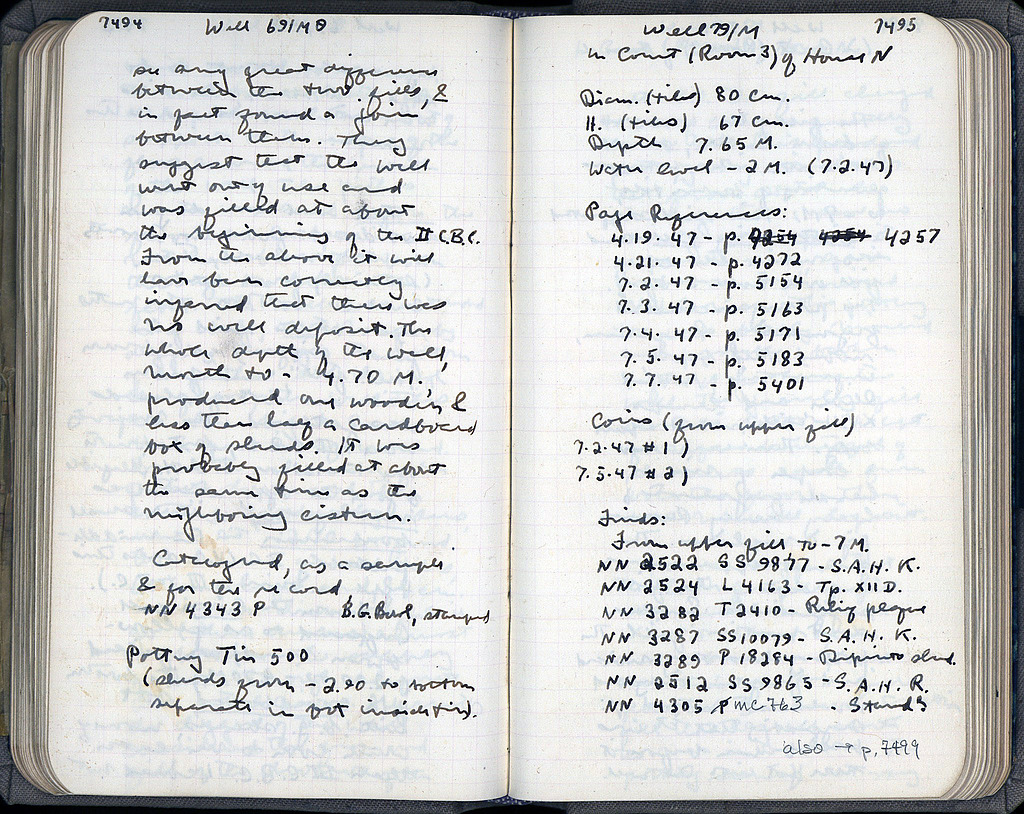 7494
Well 69/MΘ
see any great difference
between the two fills, &
in fact found a join
between them. They
suggest that the well
went out of use and
was filled at about
the beginning of the II C.B.C.
From the above it will
have been correctly
inferred that there was
no well deposit. The
whole depth of the well,
mouth to - 4.70 M.,
produced one wooden &
less than half a cardboard
box of sherds. It was
probably filled at about
the same time as the
neighboring cistern.
Catalogued, as a sample
& for the record
NN 4343 P B.G. Bowl, stamped
Pottery Tin 500
(sherds from - 2.90 to bottom
separate in pot inside tin).
7495
Well 79/M
in Court (Room 3) of House N
Diam. (tiles) 80 cm.
H. (tiles) 67 cm.
Depth 7.65 M.
Water level - 2 M. (7.2.47)
Page References:
4.19.47 - p. 4254 4254 4257
4.21.47 - p. 4272
7.2.47 - p. 5154
7.3.47 - p. 5163
7.4.47 - p. 5171
7.5.47 - p. 5183
7.7.47 - p. 5401
Coins (from upper fill)
7.2.47 #1)
7.5.47 #2)
Finds:
From upper fill to - 7 M.
NN 2522 SS 9877 - S.A.H. K.
NN 2524 L 4163 - Tp. XII D.
NN 3282 T 2410 - Relief plaque
NN 3287 SS 10079 - S.A.H. K.
NN 3289 P 18284 - Dipinto sherd.
NN 2512 SS 9865 - S.A.H. R.
NN 4305 P MC 763 - Stand?
also → p. 7499